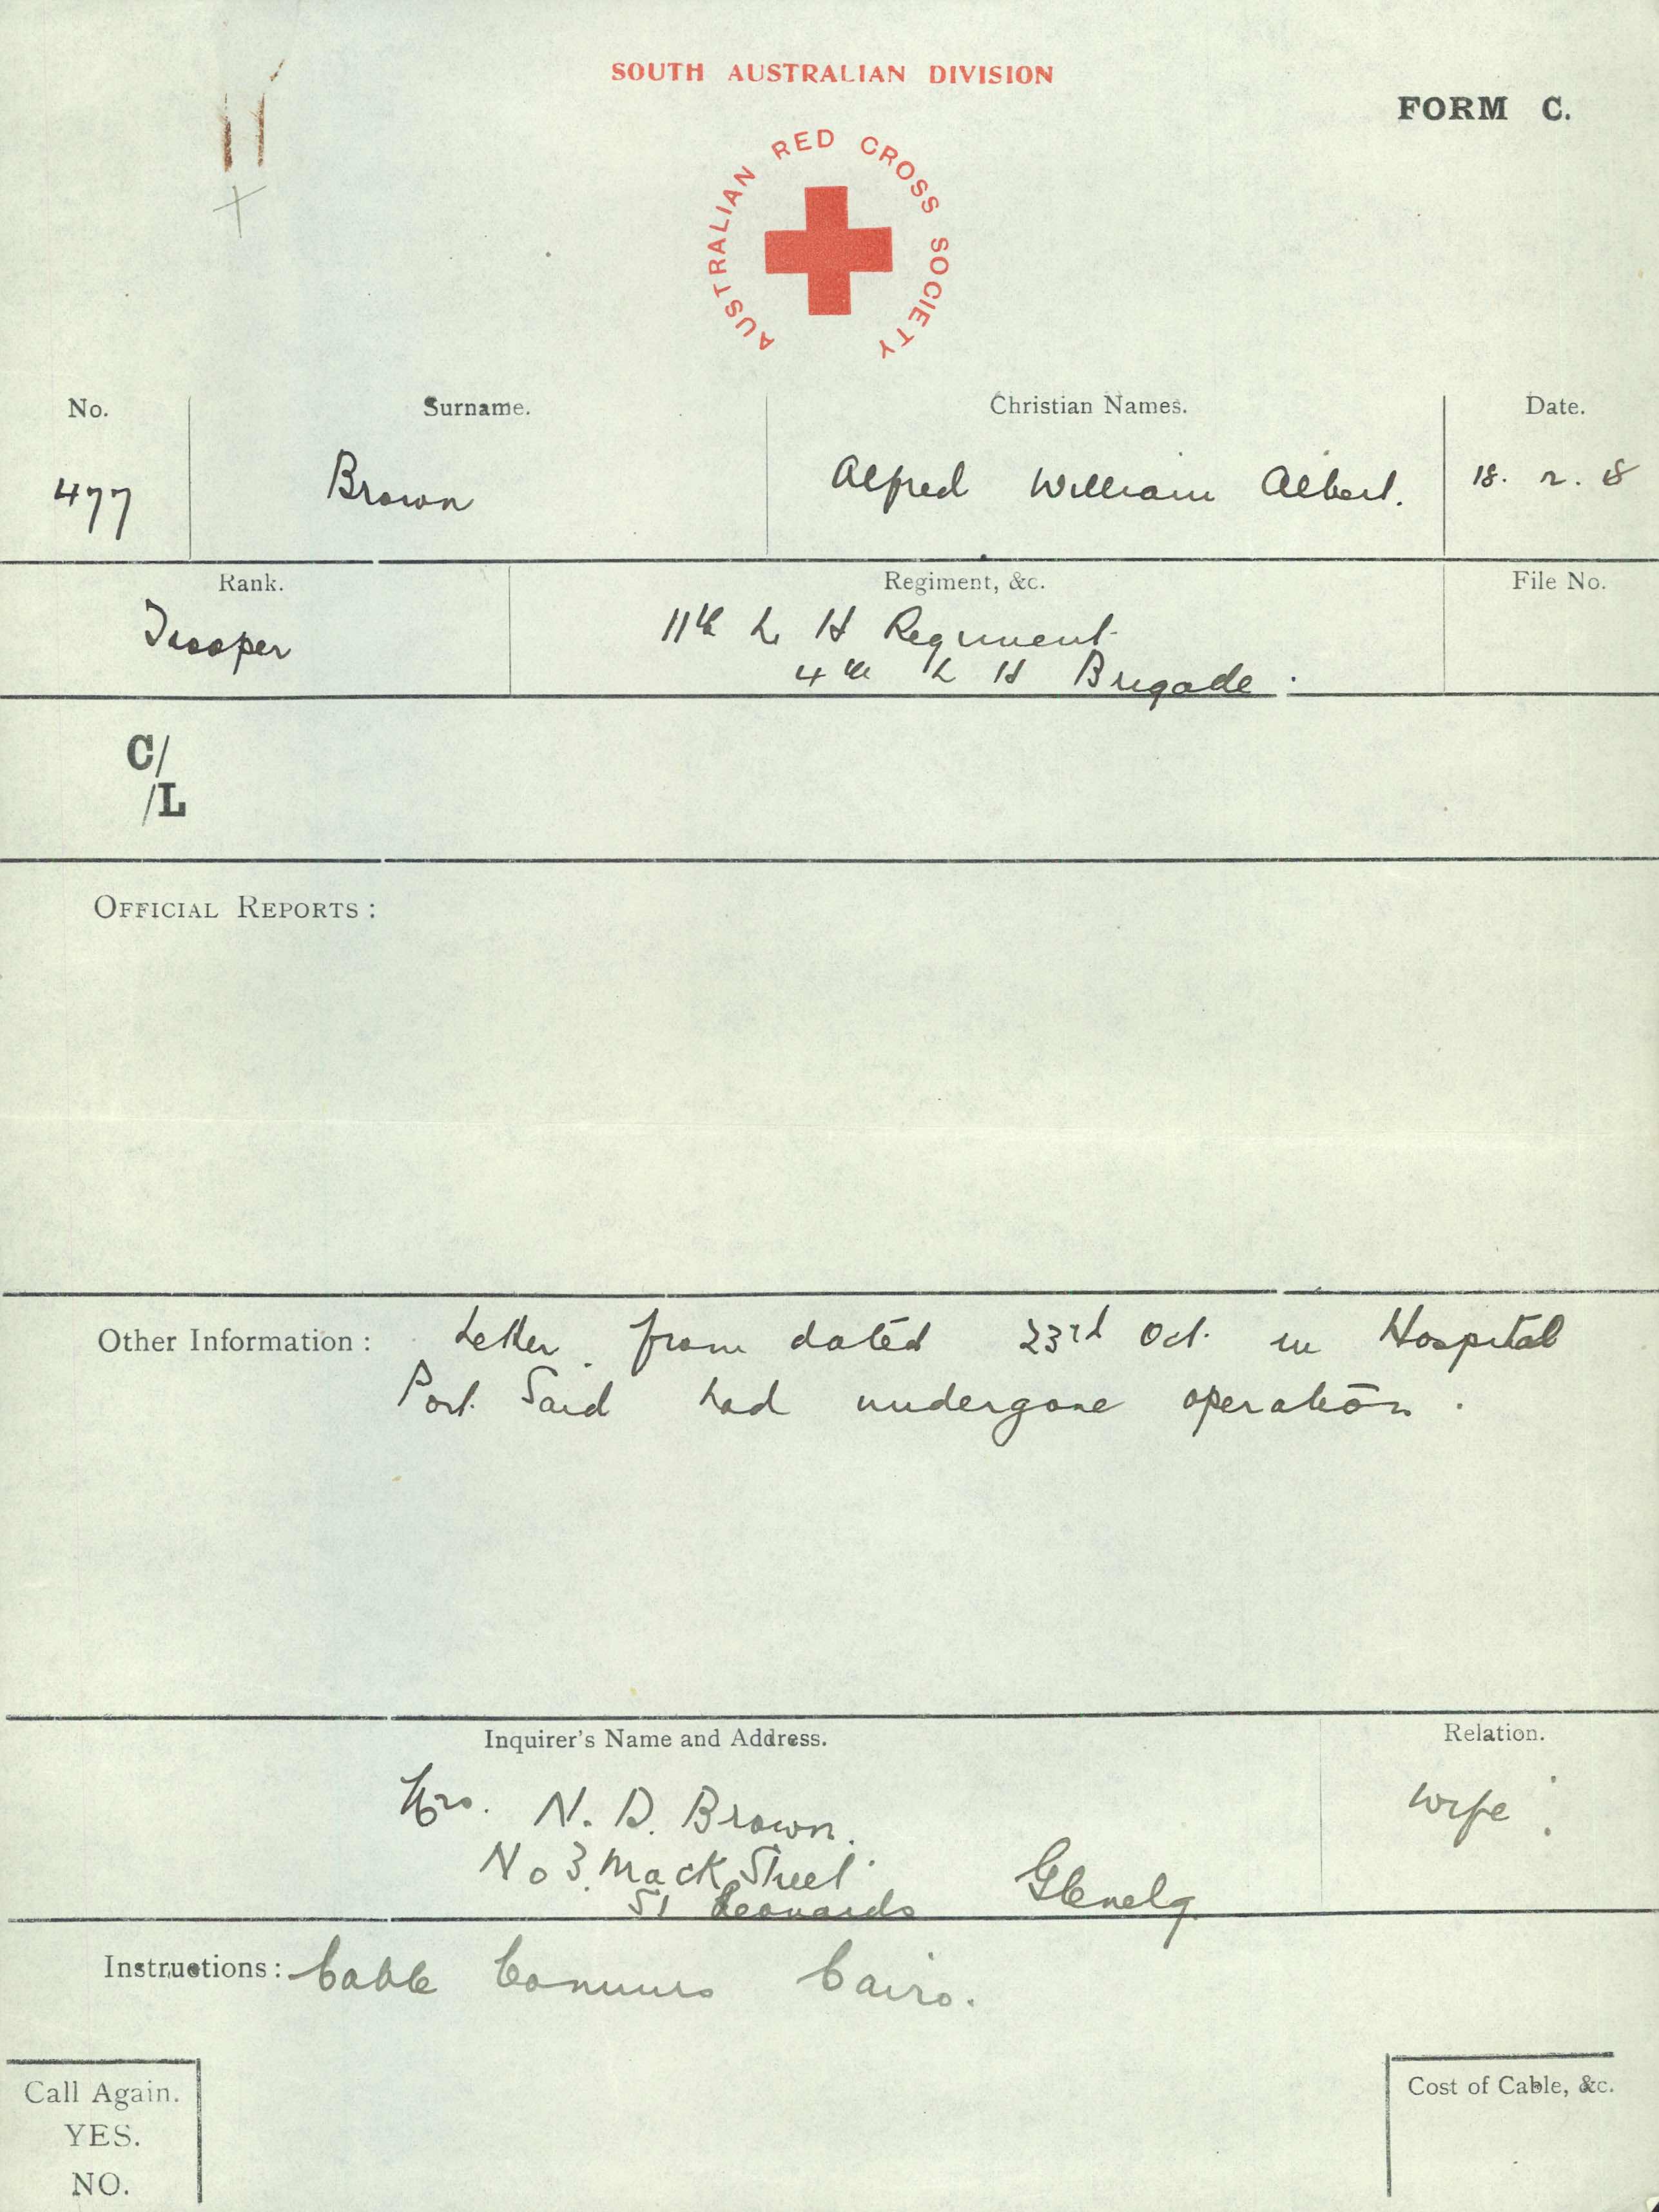 SOUTH AUSTRALIAN DIVISION
FORM C.
AUSTRALIAN RED CROSS SOCIETY
No. Surname. Christian Names. Date.
477 Brown Alfred William Albert. 18. 2. 18
Rank. Regiment, &c. File No.
Trooper 11th L H Regiment
4th L H Brigade.
C/
/L
OFFICIAL REPORTS:
Other Information: Letter from dated 23rd Oct. in Hospital
Port Said had undergone operation.
Inquirer's Name and Address. Relation.
Mrs. N. D. Brown. wife.
No 3. Mack Street
St Leonards Glenelg
Instructions: Cable Cairo.
Call Again.
YES.
NO.
Cost of Cable, &c.